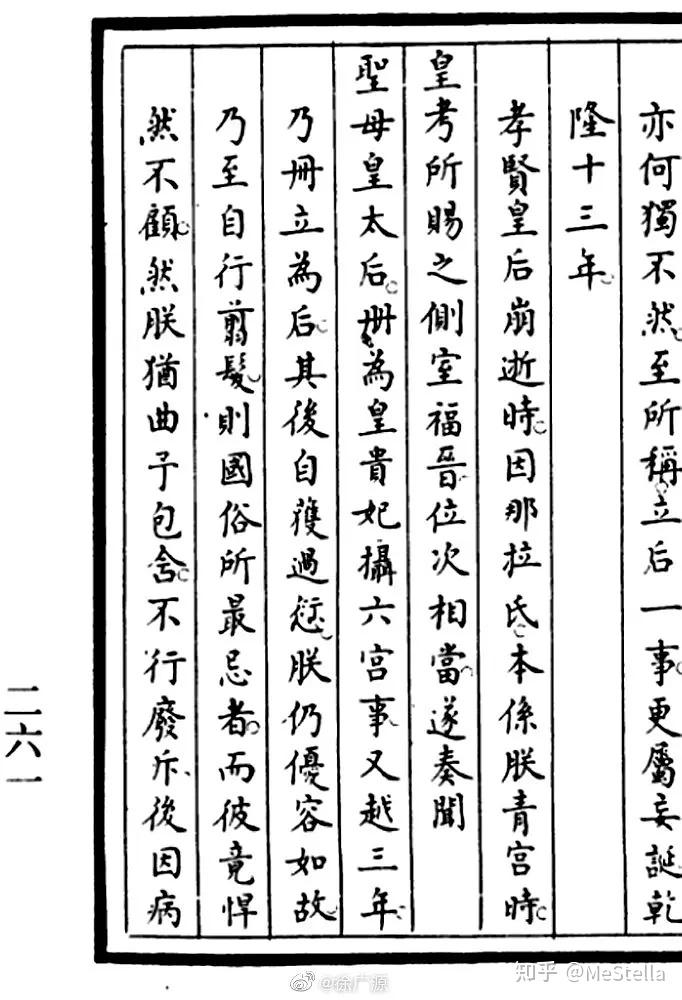 亦何獨不然至所稱立后一事更屬妄誕乾
隆十三年
孝賢皇后崩逝時因那拉氏本係朕青宮時
皇考所賜之側室福晉位次相當遂奏聞
聖母皇太后冊為皇貴妃攝六宮事又越三年
乃冊立為后其後自獲過愆朕仍優容如故
乃至自行翦髮則國俗所最忌者而彼竟悍
然不顧然朕猶曲予包含不行廢斥後因病
二六一
@徐广源
知乎 @MeStella